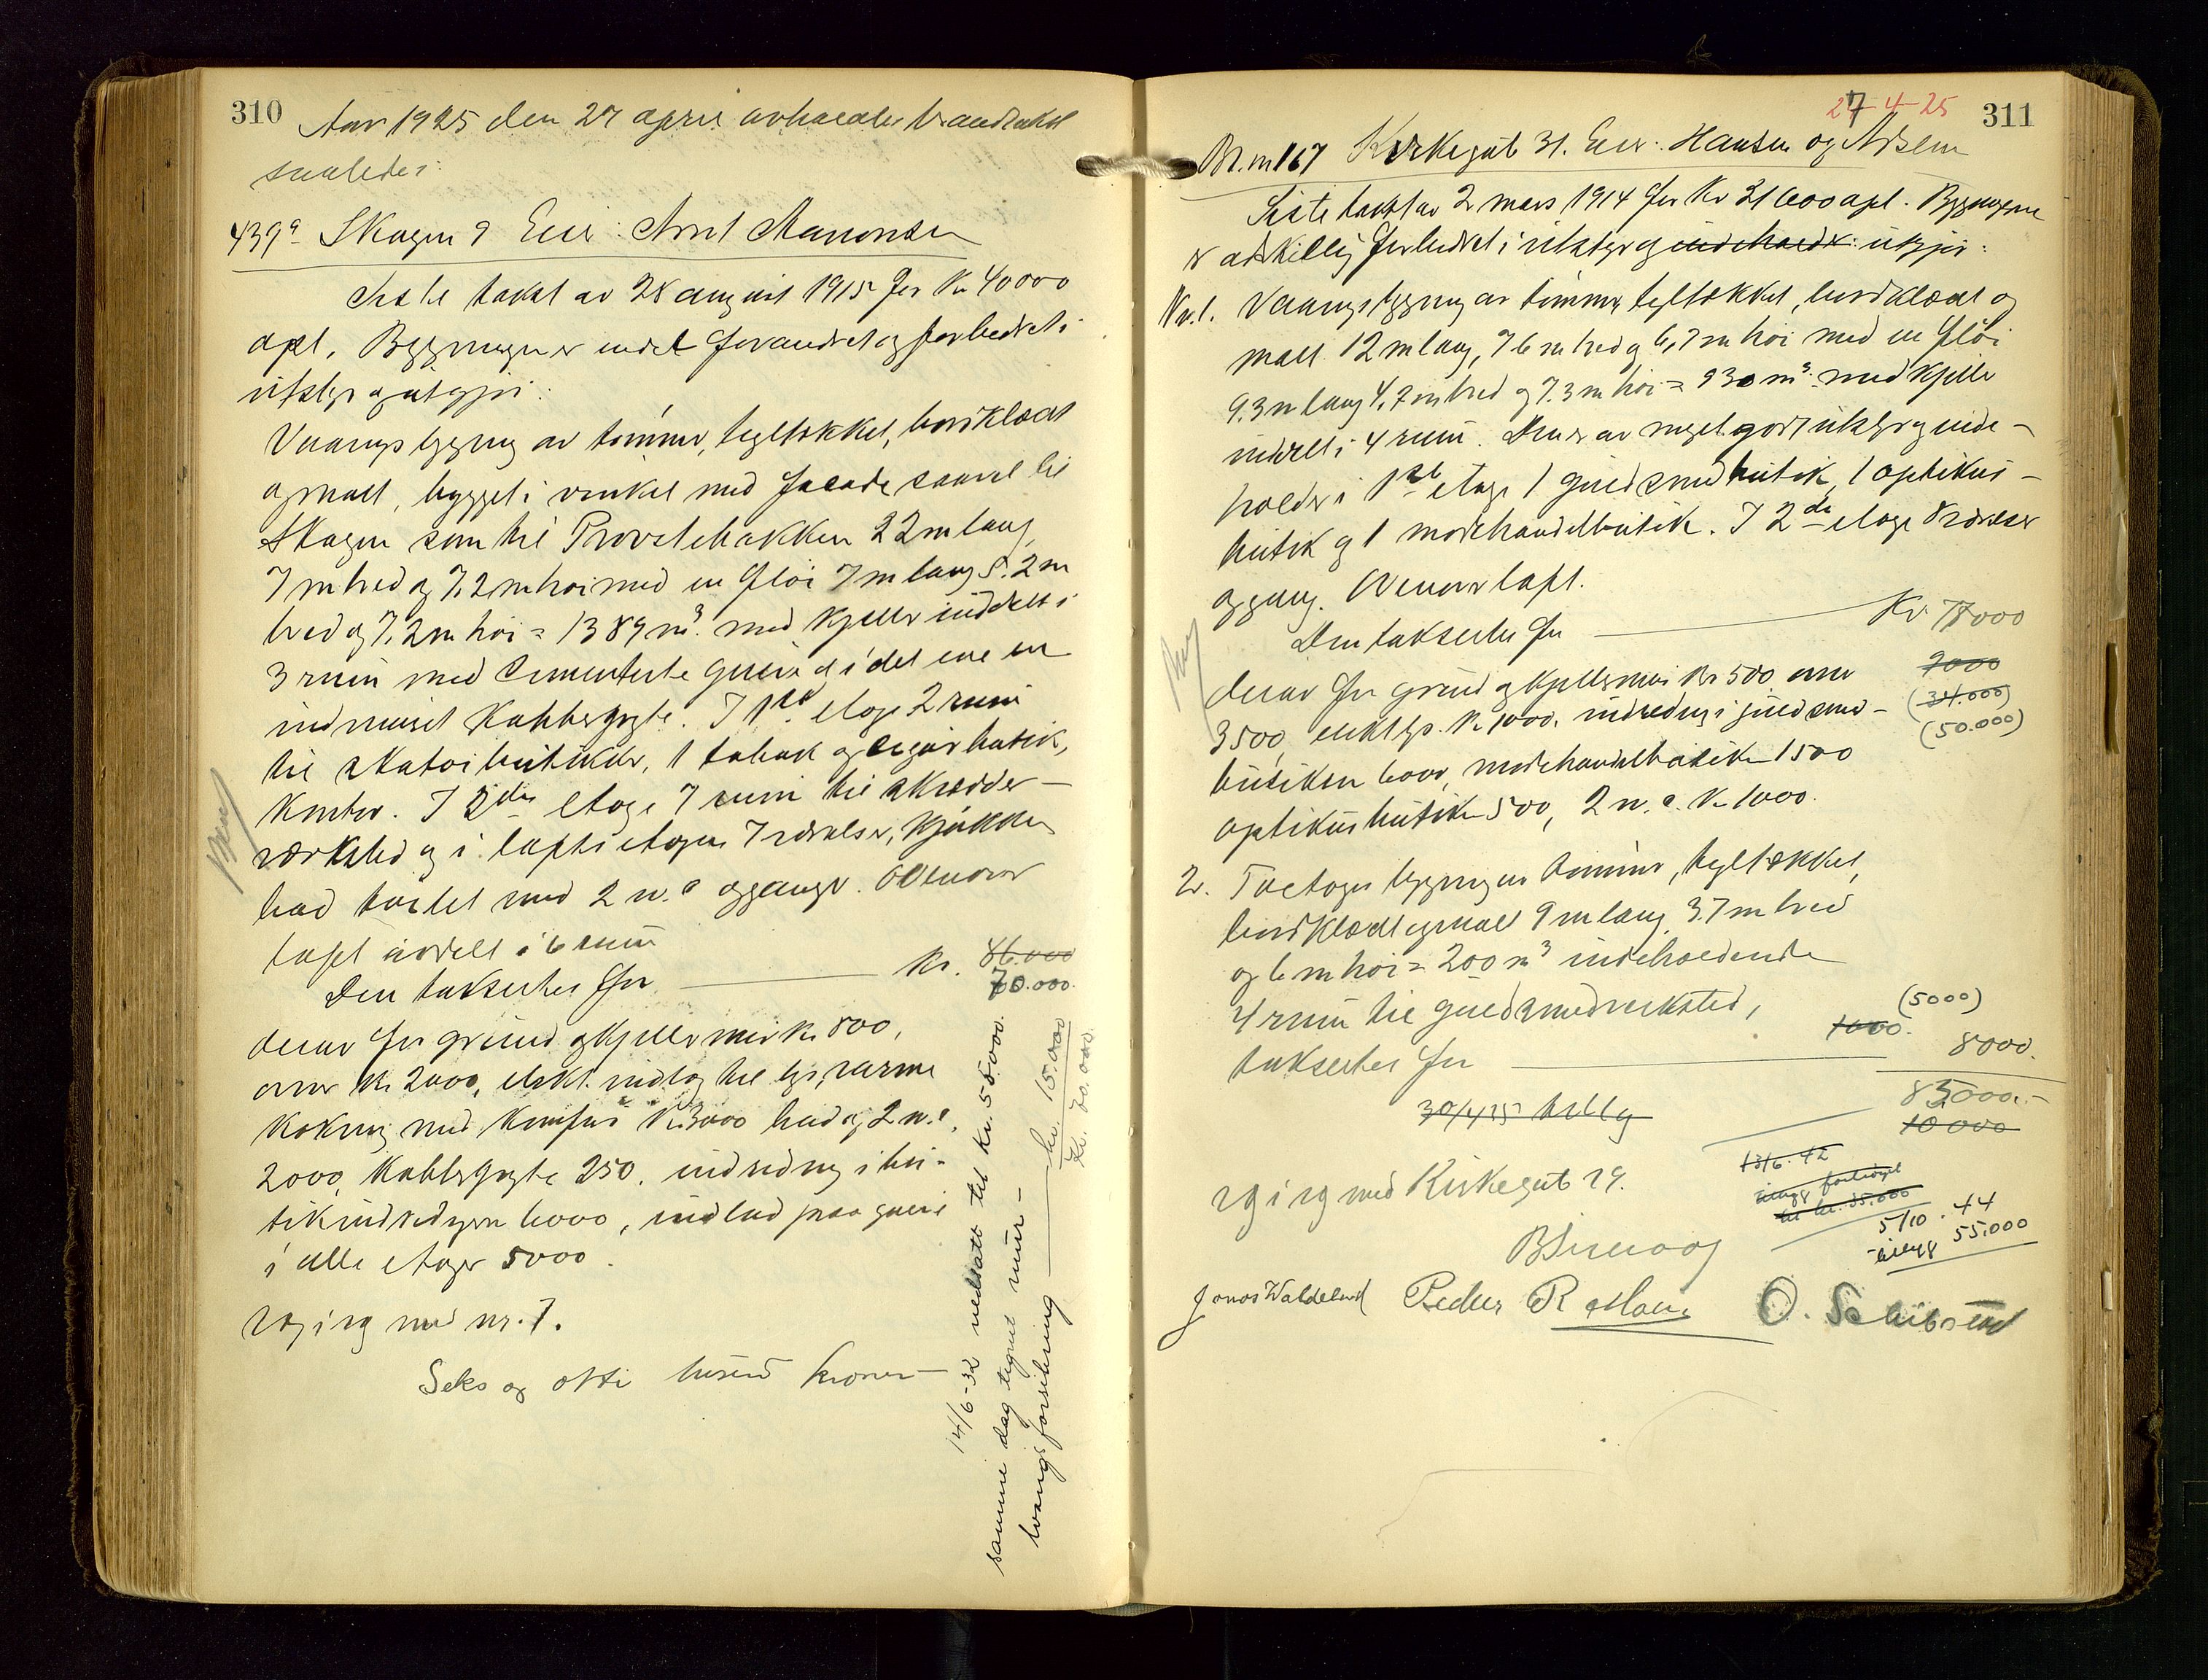 310
Aar 1925 den 27 april avholdtes brandtakst
saaledes:
439a Skagen 9 Eier: Arnt Aanonsen
Siste takst av 28 august 1915 for Kr 40000
opl. Bygningen er endel forandret og forbedret i
utstyr og utgjør:
Vaaningsbygning av tømmer, teglstækket, bordklædt
og malt, bygget i vinkel med facade saavel til
Skagen som til Provstebakken 22 m lang,
7 m bred og 7,2 m høi med en fløi 7 m lang 5.2 m
bred og 7,2 m høi = 1389 m³ med kjeller inddelt i
3 rum med cementerte gulv og i det ene en
indmuret kobbergryte. I 1ste etage 2 rum
til skotøibutikker, 1 tobak og cigarbutik,
kontor. I 2den etage 7 rum til skrædder-
værksted og i loftsetagen 7 værelser, kjøkken
bad toilet med 2 w.c. opgange. Ovenover
loft avdelt i 6 rum
Den takseres for Kr. 86.000
70.000.
derav for grund og kjellermur kr 800,
ovner Kr. 2000, elekt. indlæg til lys, varme
kokning med komfur Kr. 3000 bad og 2 w.c.
2000, kobbergryte 250, indredning i bu-
tikindredningen 6000, indlæg paa gulve
i alle etager 5000.
Vegg i vegg med nr. 7.
Seks og otti tusend kroner
14/6-32 nedsatt til kr. 55.000.
samme dag tegnet mur-
tvangsforsikring kr. 15.000
Kr. 70.000.
27-4-25
311
Br. nr 167 Kirkegat 31. Eier: Hansen og Nilsen
Siste takst av 2 mars 1914 for Kr 31600 opl. Bygningene
er adskillig forbedret i utstyr og indeholder: utgjør:
Nr. 1. Vaaningsbygning av tømmer, teglstækket, bordklædt og
malt 12 m lang, 7 6 m bred og 6,7 m høi med en fløi
9.3 m lang 4,7 m bred og 7.3 m høi = 930 m³ med kjeller
inddelt i 4 rum. Den er av meget godt utstyr og inde-
holder i 1ste etage 1 guldsmedbutik, 1 optikus-
butik og 1 motehandelbutik. I 2den etage 8 værelser
og gang. Ovenover loft.
Den takseres for Kr. 78000
derav for grund og kjellermur Kr 500 ovner 7000
3500, elekt lys Kr. 1000. indredning i guldsmed- (34.000)
butiken 6000, motehandelbutiken 1500 (50.000)
optikusbutiken 500, 2 w.c. Kr 1000.
2. Toetages bygning av tømmer, teglstækket,
bordklædt og malt 9 m lang 3.7 m bred
og 6 m høi = 200 m³ indeholdende
4 rum til guldsmedverksted, (5000)
takseres for 1000. 8000.
30/4 25 tillæg 85,000.-
10 000
13/6.42
tillegg forhøyet
til kr. 35.000
5/10.44
tillegg 55.000
Vegg i vegg med Kirkegat 29.
Jonas Waldeland Peder R. O. Schibsted